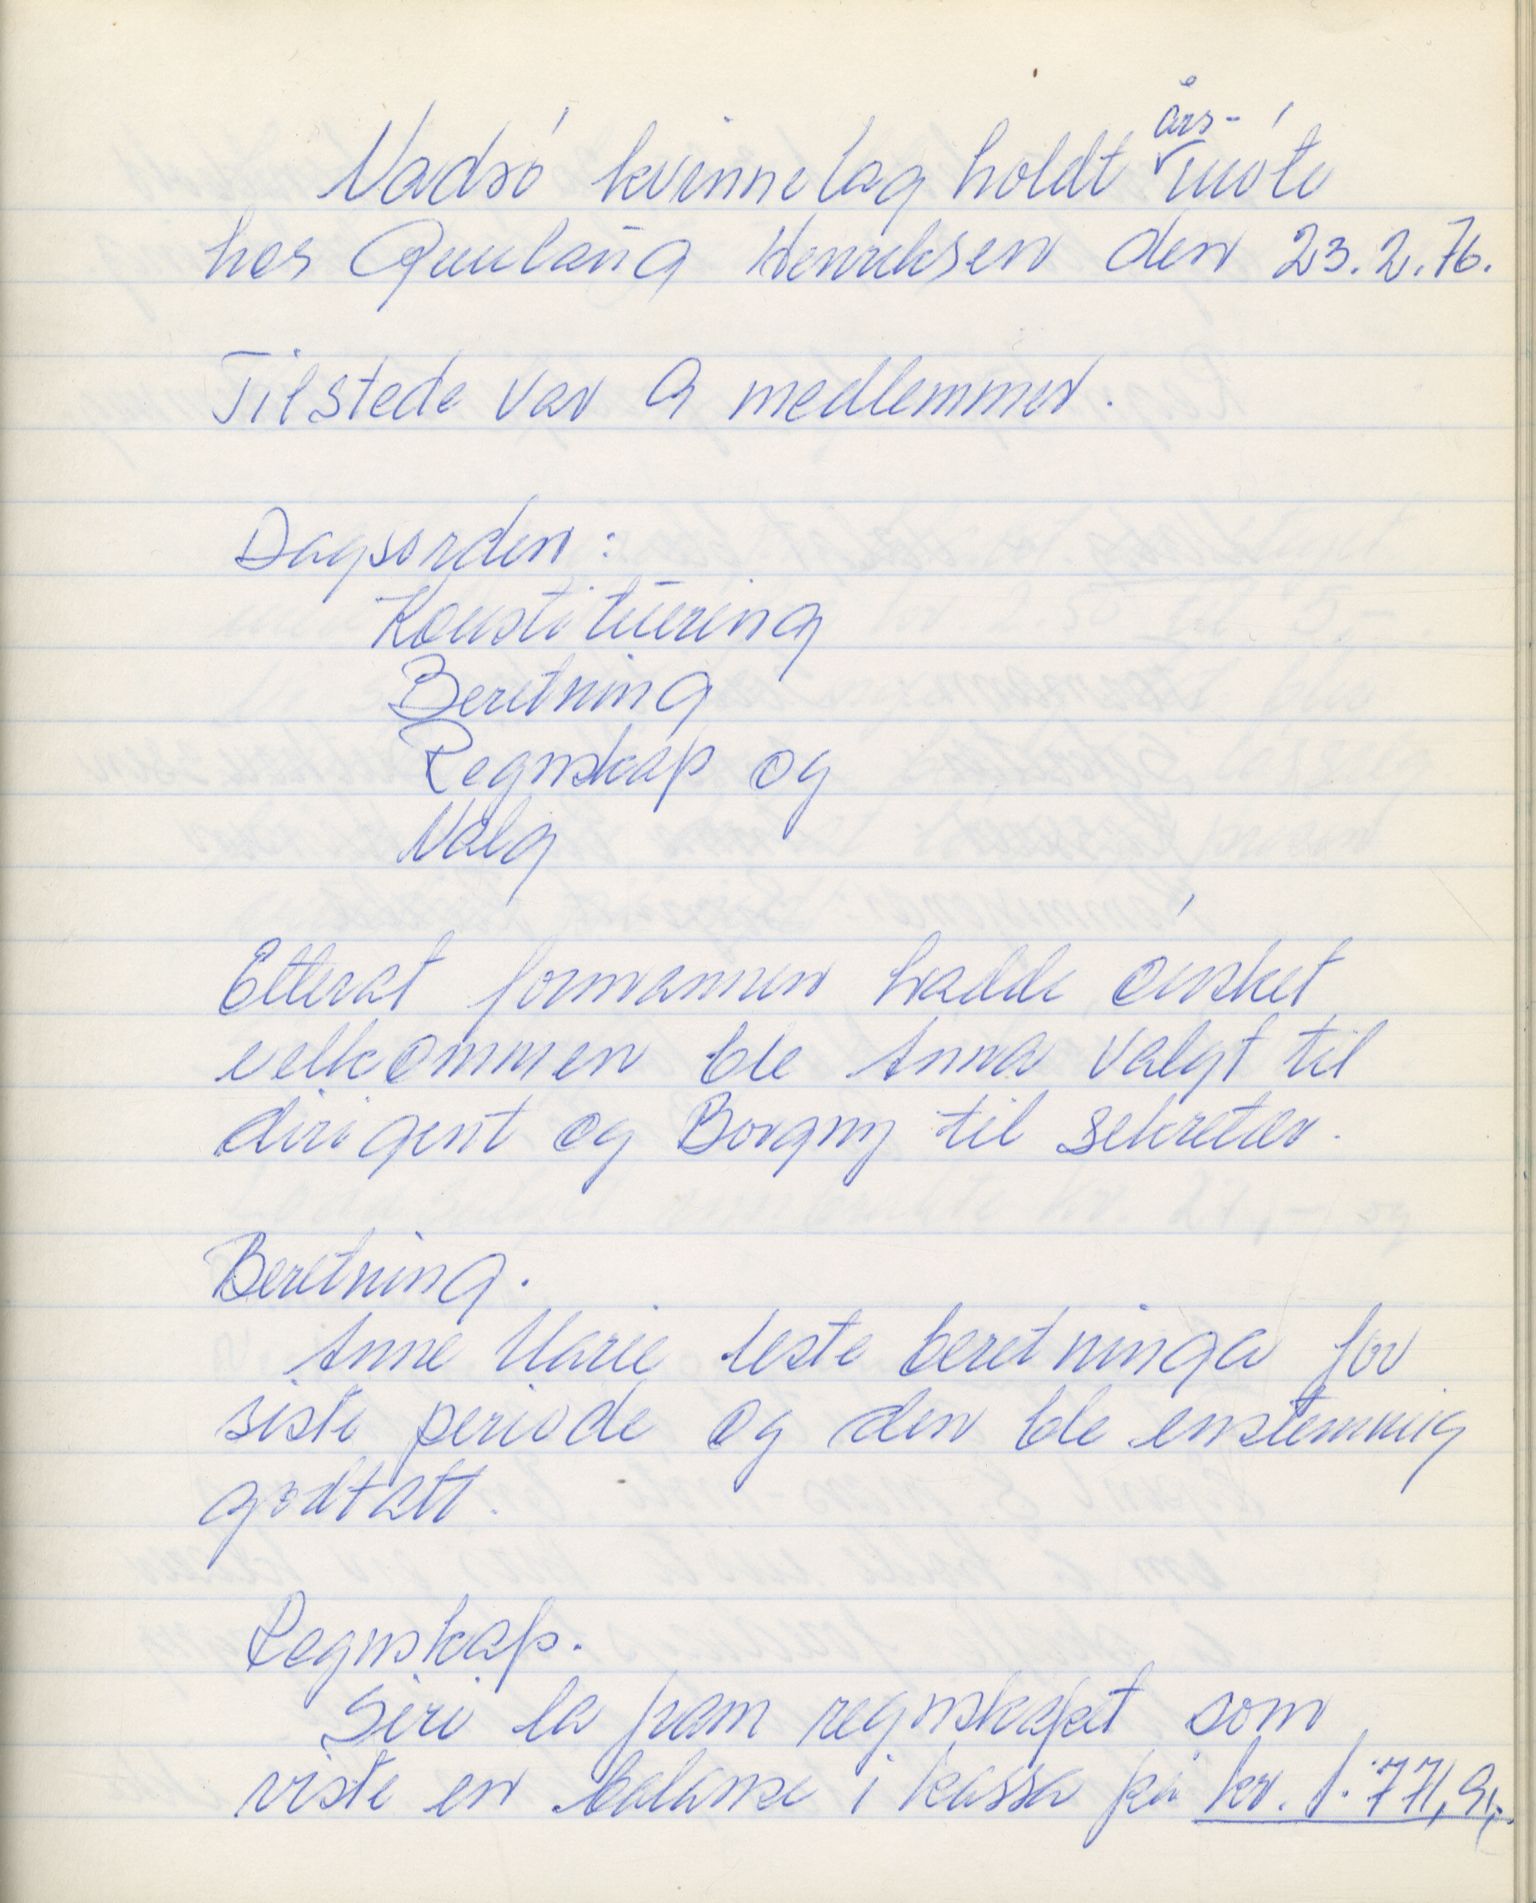 Vadsø kvinnelag holdt års-møte
hos Gunlaug Henriksen den 23.2.76.
Tilstede var 9 medlemmer.
Dagsorden:
Konstituering
Beretning
Regnskap og
Valg
Etterat formannen hadde ønsket
velkommen ble Anna valgt til
dirigent og Borgny til sekretær.
Beretning.
Anne Marie leste beretninga for
siste periode og den ble enstemmig
godtatt.
Regnskap.
Siri la fram regnskapet som
viste en balanse i kassa på kr. 1.771,91,-